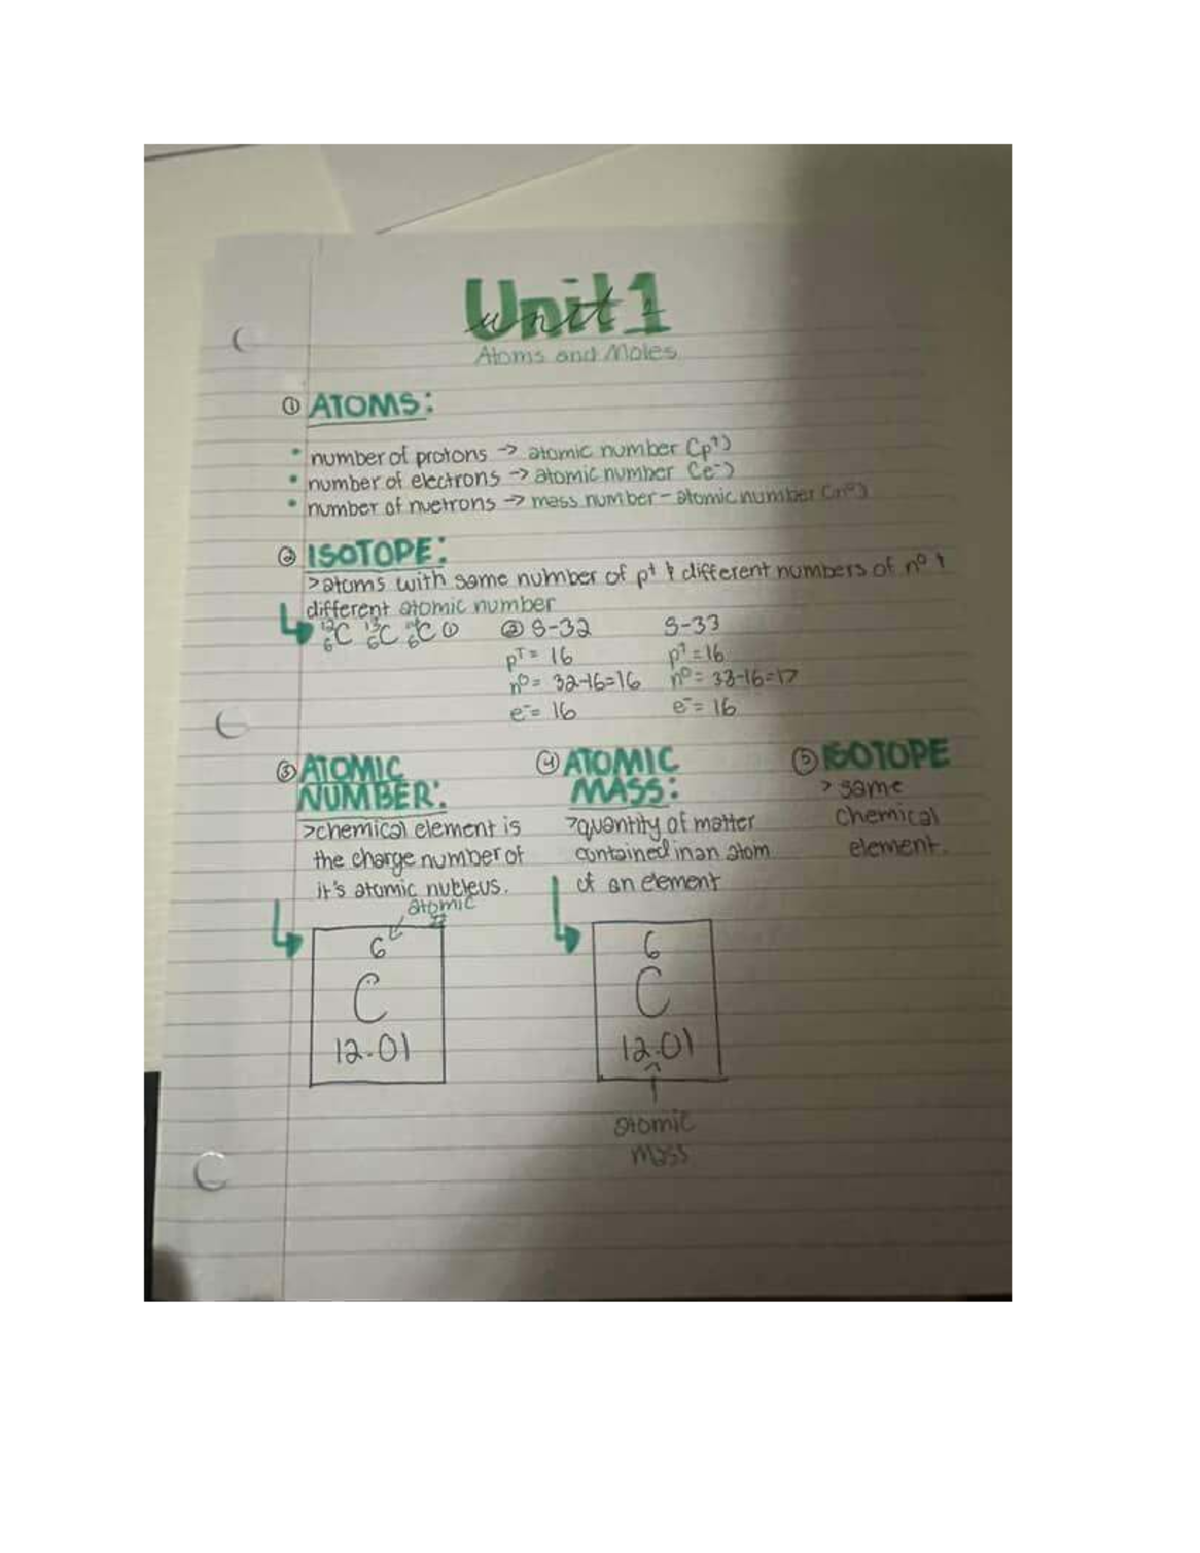 Unit 1
unit 1
Atoms and Moles
① ATOMS:
• number of protons -> atomic number (p⁺)
• number of electrons -> atomic number (e⁻)
• number of nuetrons -> mass number - atomic number (n⁰)
② ISOTOPE:
>atoms with same number of p⁺ & different numbers of n⁰ &
different atomic number
¹²₆C ¹³₆C ¹⁴₆C ① ② S-32 S-33
p⁺= 16 p⁺=16
n⁰= 32-16=16 n⁰= 33-16=17
e⁻= 16 e⁻= 16
③ ATOMIC
NUMBER:
>chemical element is
the charge number of
it's atomic nucleus.
atomic
#
6
C
12.01
④ ATOMIC
MASS:
>quantity of matter
contained in an atom
of an element
6
C
12.01
atomic
mass
⑤ ISOTOPE
> same
chemical
element.